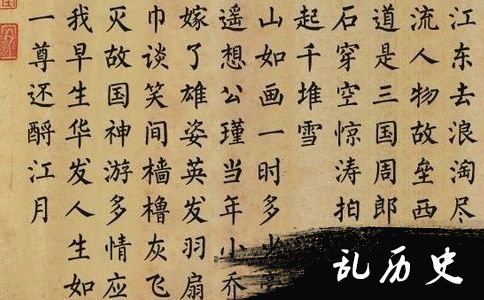 江东去浪淘尽
流人物故垒西
道是三国周郎
石穿空惊涛拍
起千堆雪
山如画一时多少
遥想公瑾当年小乔
嫁了雄姿英发羽扇
巾谈笑间樯橹灰飞
灭故国神游多情应
我早生华发人生如
一尊还酹江月
乱历史